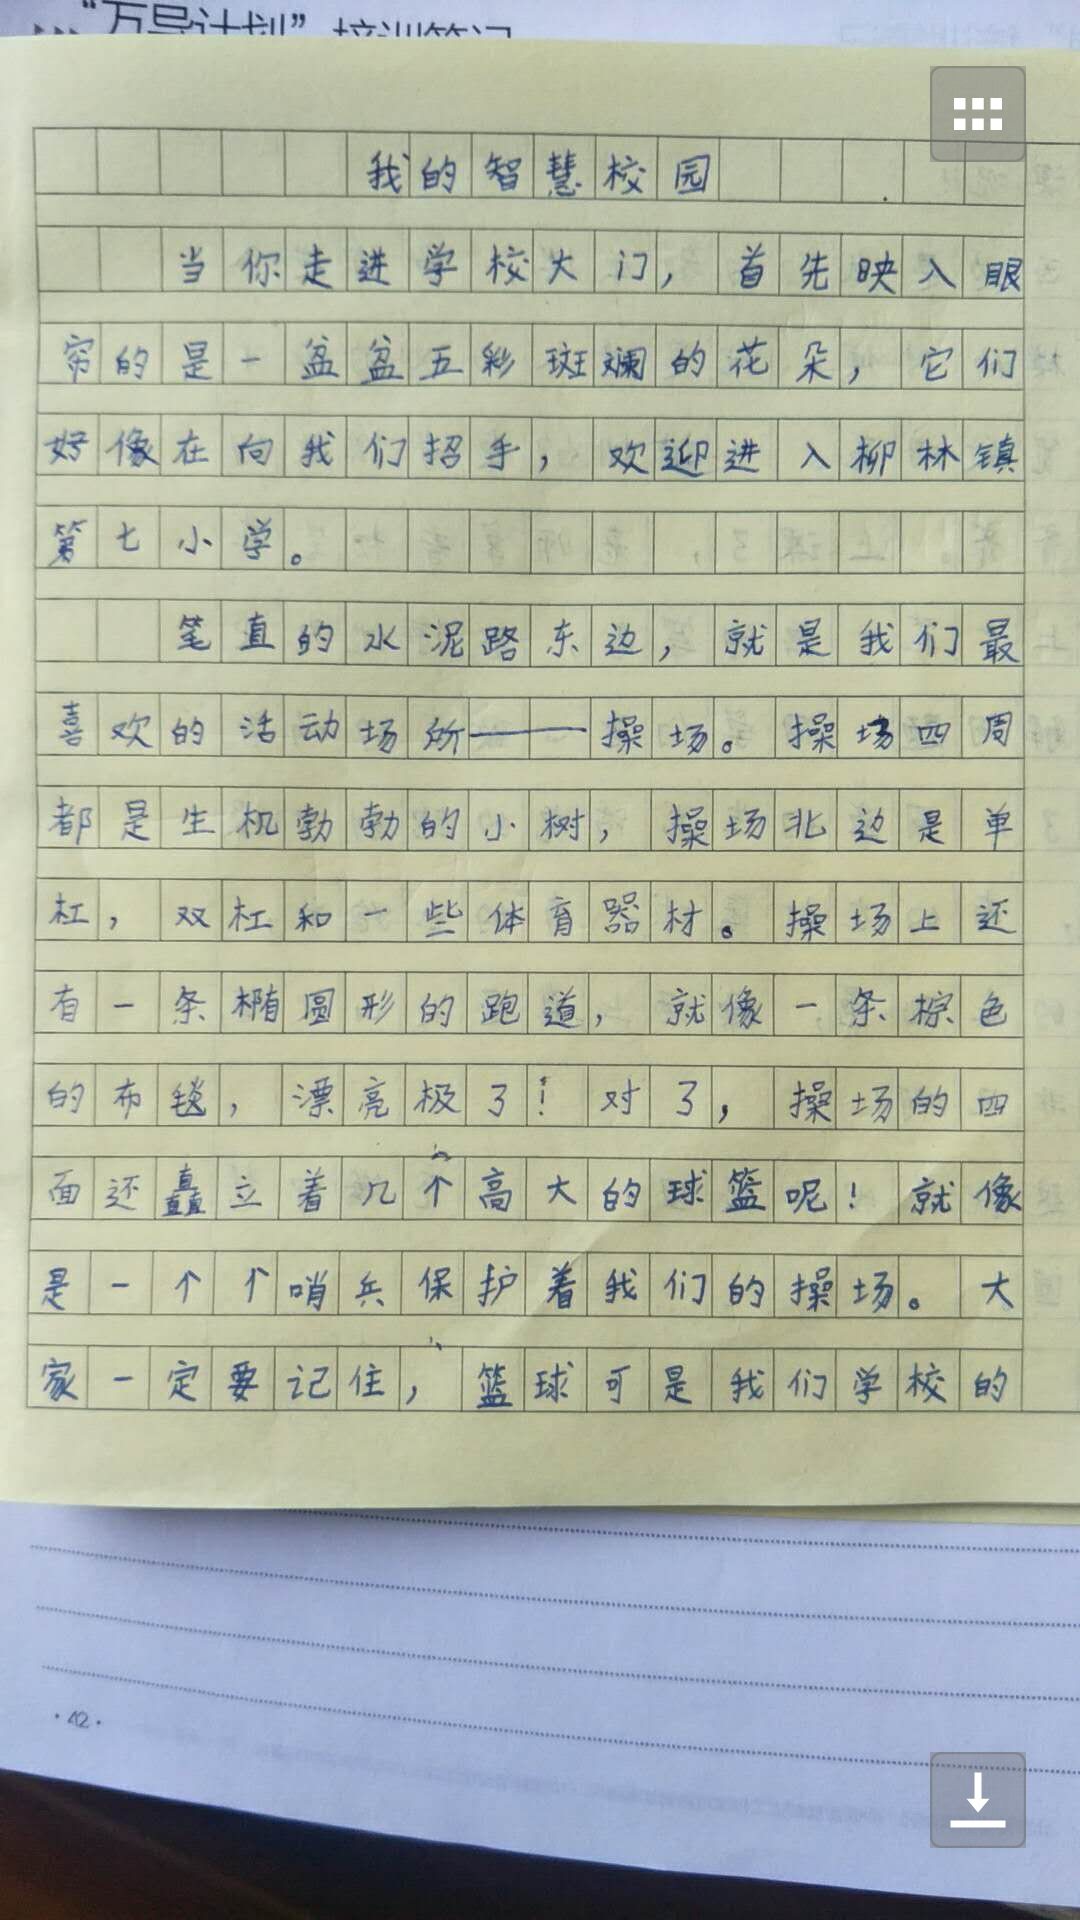 “万导计划”培训笔记
我的智慧校园
当你走进学校大门，首先映入眼
帘的是一盆盆五彩斑斓的花朵，它们
好像在向我们招手，欢迎进入柳林镇
第七小学。
笔直的水泥路东边，就是我们最
喜欢的活动场所——操场。操场四周
都是生机勃勃的小树，操场北边是单
杠，双杠和一些体育器材。操场上还
有一条椭圆形的跑道，就像一条棕色
的布毯，漂亮极了！对了，操场的四
面还矗立着几个高大的球篮呢！就像
是一个个哨兵保护着我们的操场。大
家一定要记住，篮球可是我们学校的
·42·